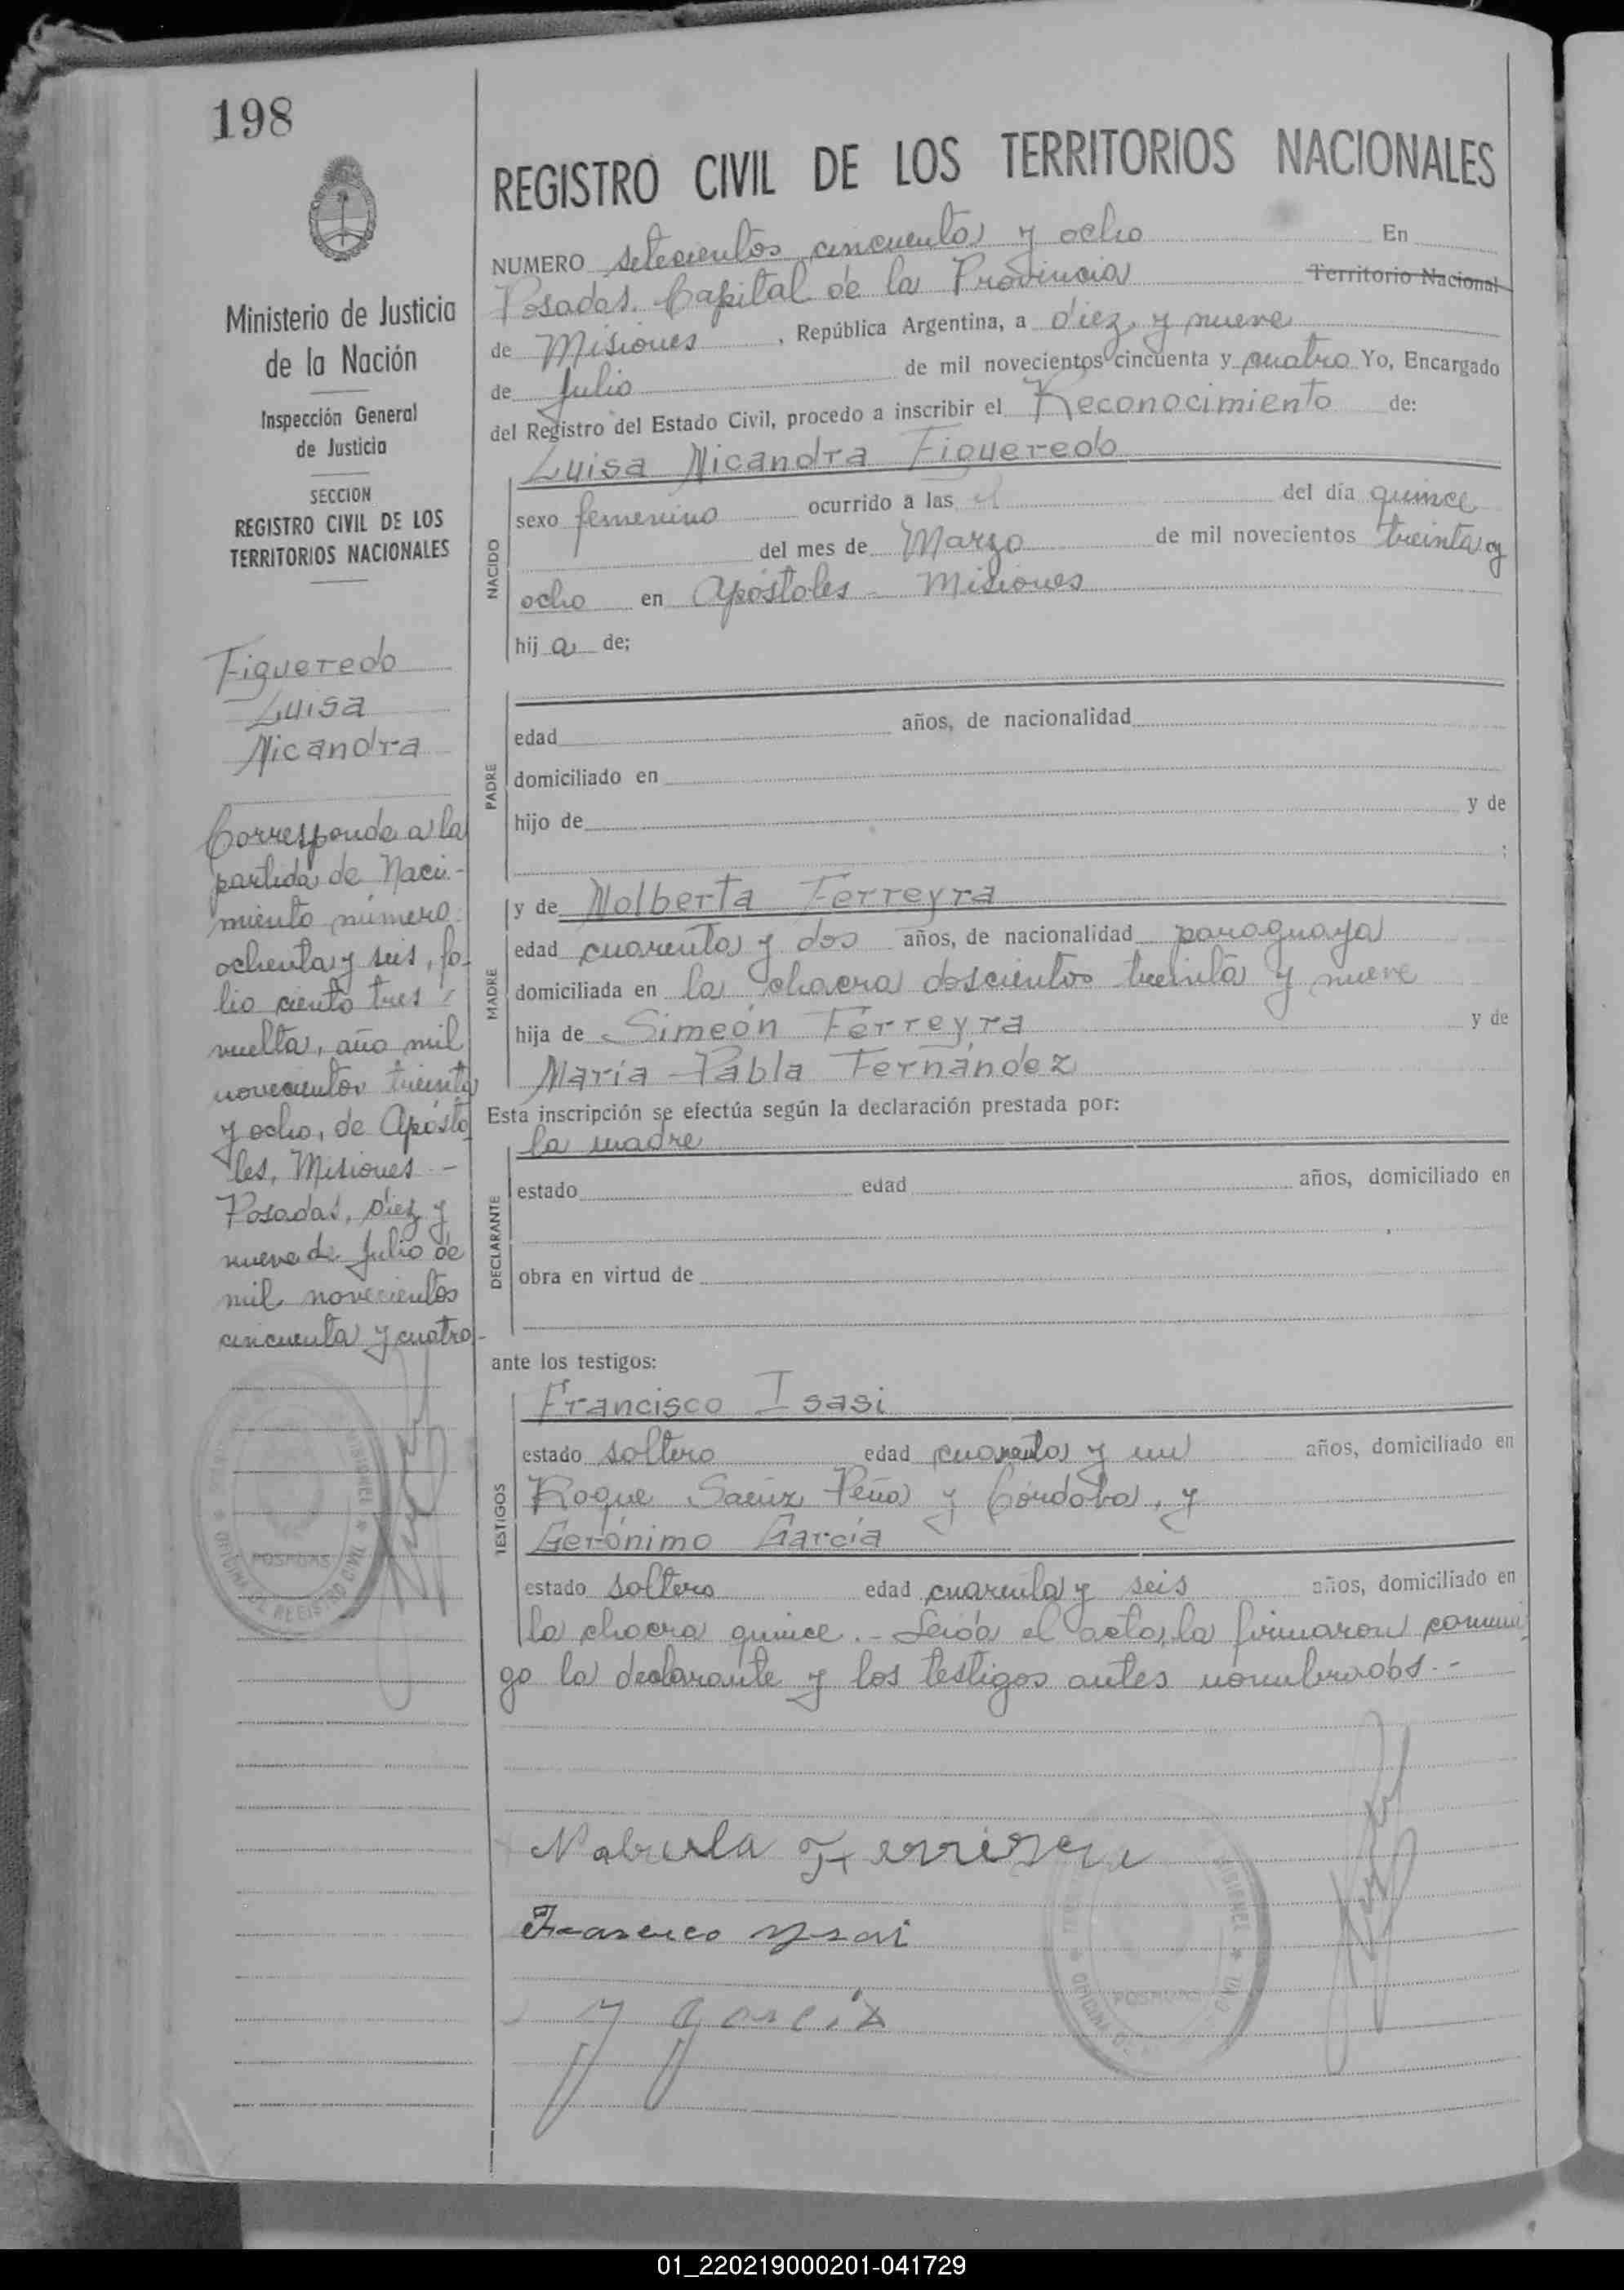 198
Ministerio de Justicia
de la Nación
Inspección General
de Justicia
SECCION
REGISTRO CIVIL DE LOS
TERRITORIOS NACIONALES
Figueredo
Luisa
Nicandra
Corresponde a la
partida de Naci-
miento número
ochenta y seis, fo-
lio ciento tres
vuelta, año mil
novecientos treinta
y ocho, de Apósto
les, Misiones -
Posadas, diez y
nueve de Julio de
mil novecientos
cincuenta y cuatro-
POSADAS
OFICINA DE REGISTRO CIVIL
REGISTRO CIVIL DE LOS TERRITORIOS NACIONALES
NUMERO setecientos cincuenta y ocho En
Posadas. Capital de la Provincia Territorio Nacional
de Misiones, República Argentina, a diez y nueve
de Julio de mil novecientos cincuenta y cuatro Yo, Encargado
del Registro del Estado Civil, procedo a inscribir el Reconocimiento de:
Luisa Nicandra Figueredo
NACIDO
sexo femenino ocurrido a las el del día quince
del mes de Marzo de mil novecientos treinta y
ocho en Apóstoles - Misiones
hij a de;
PADRE
edad años, de nacionalidad
domiciliado en
hijo de y de
;
MADRE
y de Nolberta Ferreyra
edad cuarenta y dos años, de nacionalidad paraguaya
domiciliada en la chacra doscientos treinta y nueve
hija de Simeón Ferreyra y de
María Pabla Fernández
Esta inscripción se efectúa según la declaración prestada por:
la madre
DECLARANTE
estado edad años, domiciliado en
obra en virtud de
ante los testigos:
TESTIGOS
Francisco Isasi
estado soltero edad cuarenta y un años, domiciliado en
Roque Saenz Peña y Córdoba, y
Gerónimo García
estado soltero edad cuarenta y seis años, domiciliado en
la chacra quince.- Leída el acta, la firmaron conmi
go la declarante y los testigos antes nombrados.-
Francisco
García
POSADAS
01_220219000201-041729